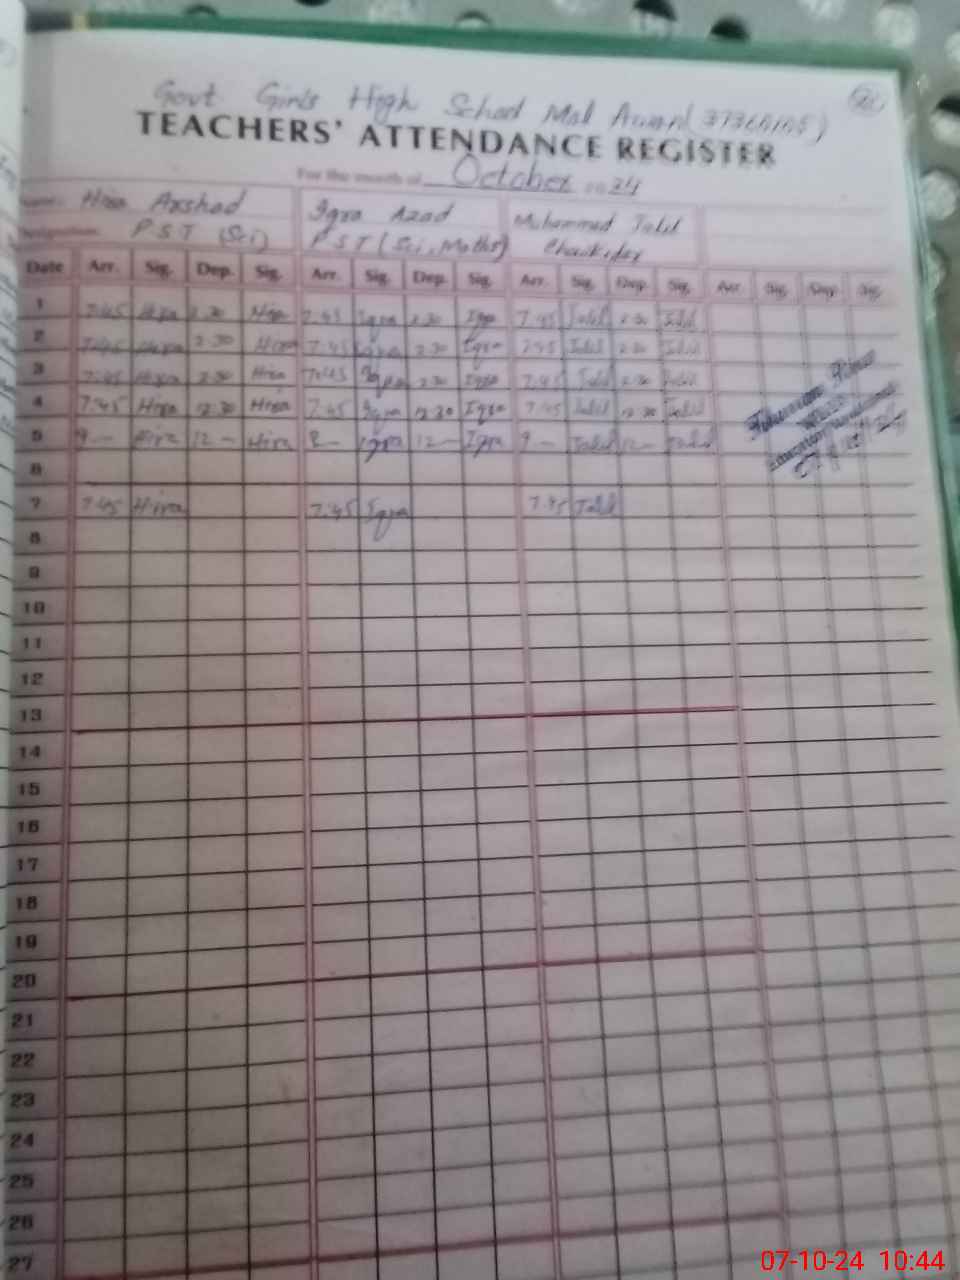 Govt Girls High School Mal Awan (37360105)
TEACHERS' ATTENDANCE REGISTER
For the month of October 2024
Name: Hira Arshad Iqra Azad Muhammad Jalil
Designation: PST (Sci) PST (Sci, Maths) Chaukidar
Date Arr. Sig. Dep. Sig. Arr. Sig. Dep. Sig. Arr. Sig. Dep. Sig. Arr. Sig. Dep. Sig.
1 7:45 Hira 2:30 Hira 7:45 Iqra 2:30 Iqra 7:45 Jalil 2:30 Jalil
2 7:45 Hira 2:30 Hira 7:45 Iqra 2:30 Iqra 7:45 Jalil 2:30 Jalil
3 7:45 Hira 2:30 Hira 7:45 Iqra 2:30 Iqra 7:45 Jalil 2:30 Jalil
4 7:45 Hira 12:30 Hira 7:45 Iqra 12:30 Iqra 7:45 Jalil 12:30 Jalil
5 9 — Hira 12 — Hira Iqra 12 — Iqra 9 — Jalil 12 — Jalil
6
7 7:45 Hira 7:45 Iqra 7:45 Jalil
8
9
10
11
12
13
14
15
16
17
18
19
20
21
22
23
24
25
26
27
07-10-24 10:44